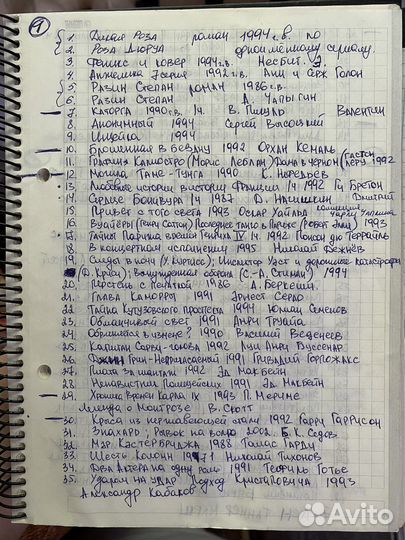 1
1. Дикая Роза роман 1994 г.в. по
2. Роза Дюруа одноименному сериалу.
3. Феникс и ковер 1994 г.в. Несбит. Э.
4. Анжелика 1992 г.в. Анн и Серж Голон
5. Разин Степан роман 1986 г.в.
6. Разин Степан А. Чапыгин
7. Каторга 1990 г.в. 1ч. В. Пикуль Валентин
8. Анонимный 1994 Сергей Высоцкий
9. 1994
10. Брошенная в бездну 1992 Орхан Кемаль
11. Графиня Калиостро (Морис Леблан) Дама в черном (Гастон Леру) 1992
12. Могила Таме-Тунга 1990 К. Нефедьев
13. Любовные истории в истории Франции 1ч 1992 Ги Бретон
14. Сердце Бонивура 1ч 1987 Д. Нагишкин Дмитрий
15. Привет с того света 1993 Оскар Уайльд
16. Вуайеры (Генри Саттон) Последнее танго в Париже (Роберт Элли) 1993
17. Тайны Парижа времён Генриха IV 1ч. 1992 Понсон дю Террайль
18. В концертном исполнении 1995 Николай Дежнёв
19. Следы в ночи (У. Кертисс); Инспектор Уэст и дорожные катастрофы
(Д. Кризи); Вынужденная оборона (С.-А. Стиман) 1994
20. Перстень с печаткой 1986 А. Беркеши.
21. Глава Каморры 1991 Эрнест Серло
22. Тайна Кутузовского проспекта 1994 Юлиан Семёнов
23. Обманчивый свет 1991 Анри Труайя
24. Обрывается в вечность 1990 Василий Веденеев
25. Капитан Сорви-голова 1992 Луи Анри Буссенар
26. Джин Грин-Неприкасаемый 1991 Гривадий Горпожакс
27. Плата за шантаж 1992 Эд Макбейн
28. Ненавистник Полицейских 1991 Эд. Макбейн
29. Хроника Времен Карла IX 1993 П. Мериме
Легенда о Монтрозе В. Скотт
30. Крыса из нержавеющей стали 1992 Гарри Гаррисон
31. Знахарь; Рывок на волю 2002. Б. К. Седов
32. Мэр Кастербриджа 1988 Томас Гарди
33. Шесть Колонн 1971 Николай Тихонов
34. Два Актера на одну роль 1991 Теофиль Готье
35. Ударом на удар Подход Кристаповича 1993
Александр Кабаков
Avito